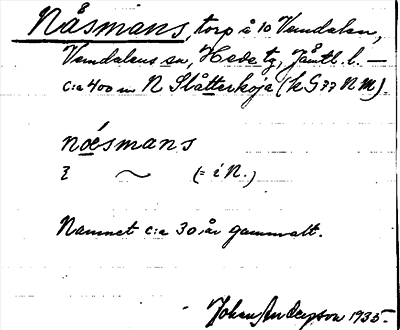 Nåsmans, torp å 10 Vemdalen,
Vemdalens sn, Hede tg, Jämtl. l. —
c:a 400 m N Slåtterkoja (k G 77 N M).
nǿsmans
ꝫ ~ (= i N.)
Namnet c:a 30 år gammalt.
Johan Anderson 1935.